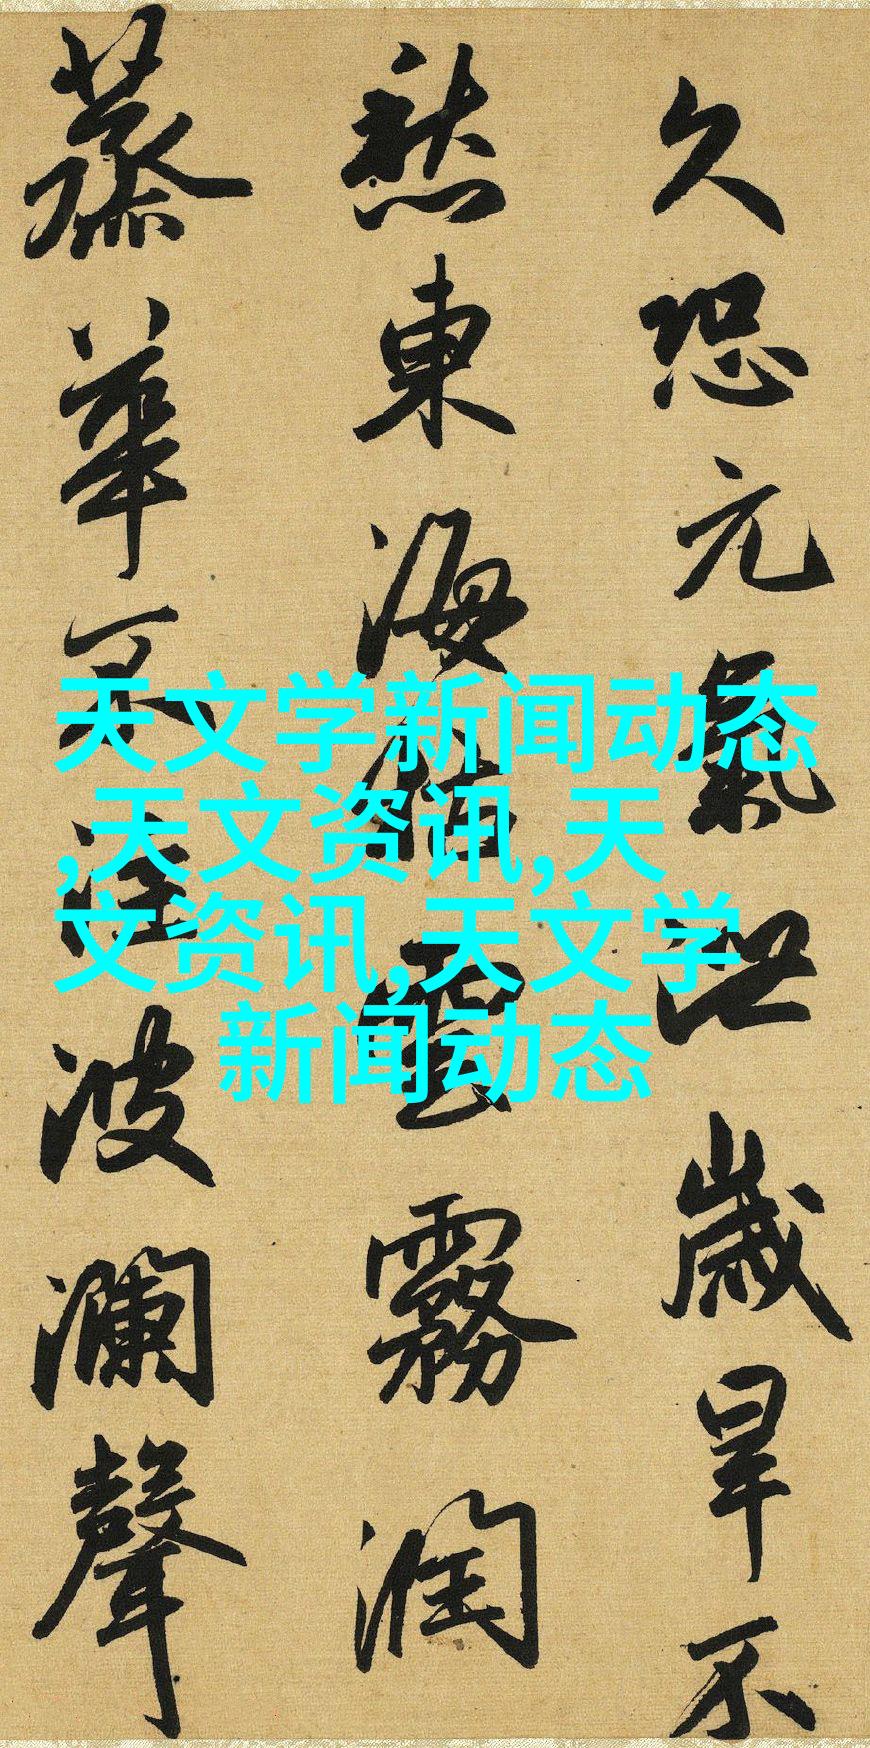 久恐元氣泄歲旱不
愁東海枯雲霧潤
蒸華不注波瀾聲
天文学新闻动态
,天文资讯,天
文资讯,天文学
新闻动态